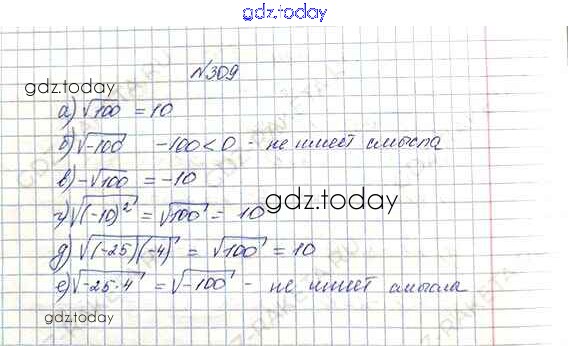 gdz.today
№309
gdz.today
а) √100 = 10
б) √-100 -100<0 - не имеет смысла
в) -√100 = -10
г) √(-10)² = √100 = 10
gdz.today
д) √(-25)(-4) = √100 = 10
е) √-25·4 = √-100 - не имеет смысла
gdz.today